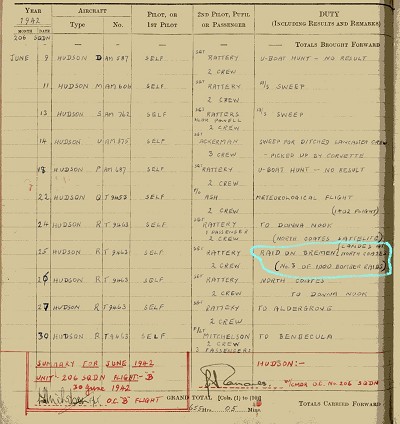 YEAR
1942
AIRCRAFT
PILOT, OR
1ST PILOT
2ND PILOT, PUPIL
OR PASSENGER
DUTY
(INCLUDING RESULTS AND REMARKS)
MONTH DATE
Type No.
206 SQDN
TOTALS BROUGHT FORWARD
JUNE 9 HUDSON D AM 587 SELF SGT RATTERY U-BOAT HUNT - NO RESULT
2 CREW
11 HUDSON M AM 606 SELF SGT RATTERY SWEEP
2 CREW
13 HUDSON S AM 762 SELF SGT SWEEP
2 CREW
14 HUDSON U AM 575 SELF SGT ACKERMAN SWEEP FOR DITCHED LANCASTER CREW
3 CREW - PICKED UP BY CORVETTE
18 HUDSON P AM SELF SGT RATTERY U-BOAT HUNT - NO RESULT
2 CREW
22 HUDSON Q T 9453 SELF P/O ASH METEOROLOGICAL FLIGHT
2 CREW (1402 FLIGHT)
24 HUDSON R T 9463 SELF SGT RATTERY TO DONNA NOOK
2 CREW (NORTH COATES SATELLITE)
25 HUDSON R T 9463 SELF SGT RATTERY RAID ON BREMEN (LANDED AT NORTH COATES)
2 CREW (No. 3 OF 1000 BOMBER RAIDS)
26 HUDSON R T 9463 SELF SGT RATTERY NORTH COATES
2 CREW TO DONNA NOOK
27 HUDSON R T 9463 SELF SGT RATTERY TO ALDERGROVE
2 CREW
30 HUDSON R T 9463 SELF MITCHELSON TO BENBECULA
2 CREW
2 PASSENGERS
SUMMARY FOR JUNE 1942 HUDSON:-
UNIT- 206 SQDN FLIGHT-"B"
30 June 1942
O.C. "B" FLIGHT
W/CMDR OC. No 206 SQDN
GRAND TOTAL [Cols. (1) to (10)]
655 Hrs. 05 Mins.
TOTALS CARRIED FORWARD